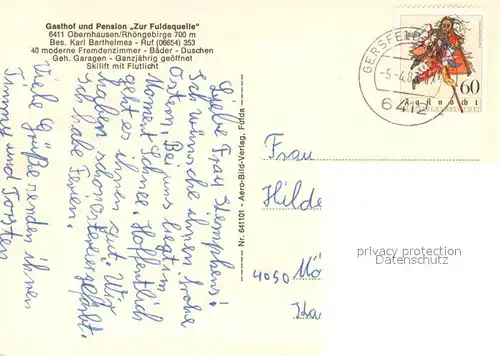 Gasthof und Pension „Zur Fuldaquelle"
6411 Obernhausen/Rhöngebirge 700 m
Bes. Karl Barthelmes - Ruf (06654) 353
40 moderne Fremdenzimmer - Bäder - Duschen
Geh. Garagen - Ganzjährig geöffnet
Skilift mit Flutlicht
Liebe Frau Stemphens!
Ich wünsche ihnen frohe
Ostern. Bei uns liegt im
Moment Schnee. Hoffentlich
geht es ihnen gut. Wir
haben schon Ostereier gefärbt.
Ich habe Ferien.
Viele Grüße senden ihnen
Timmy und Torsten
Nr. 641101 - Aero-Bild-Verlag, Fulda
GERSFELD
-5.-4.8
6412
60
Fastnacht
DEUTSCHE BUNDESPOST
Frau
Hilde
4050 Mö
Ka
privacy protection
Datenschutz